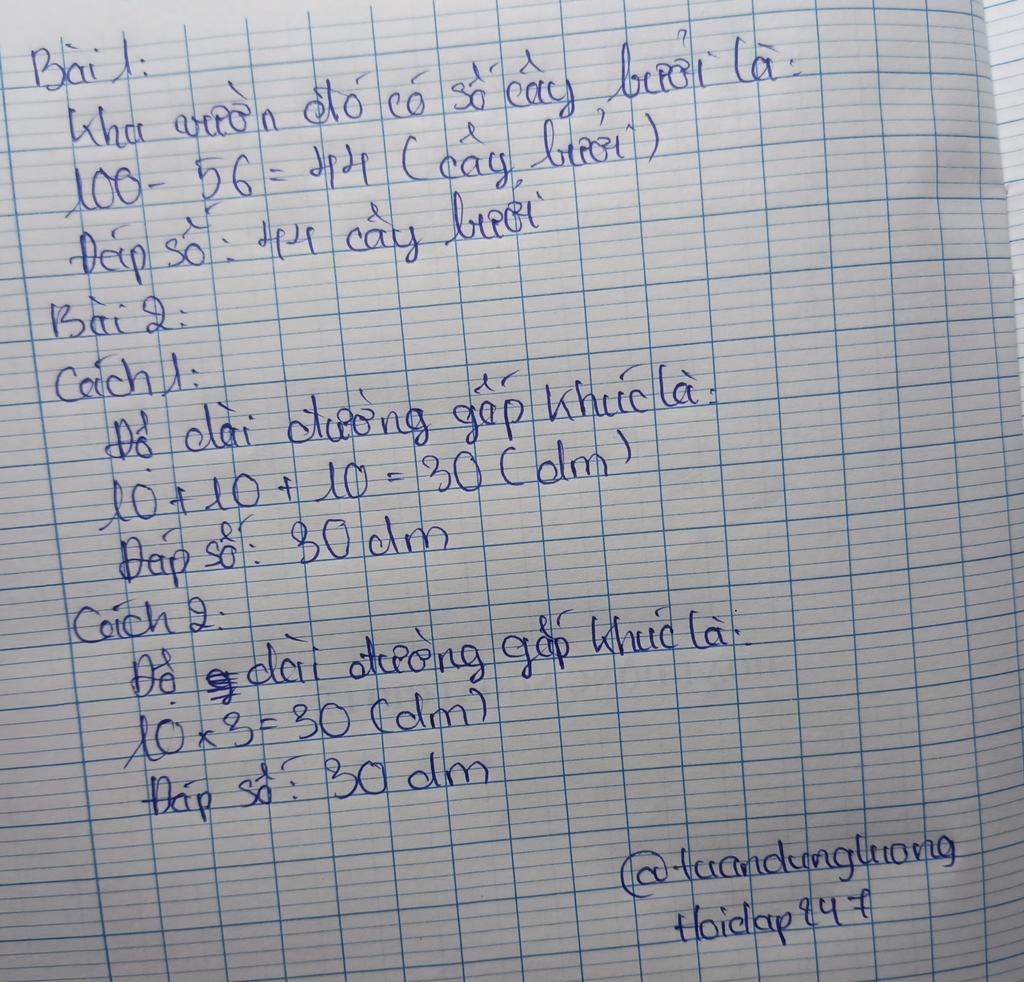 Bài 1:
Khu vườn đó có số cây bưởi là:
100 - 56 = 44 (cây bưởi)
Đáp số: 44 cây bưởi
Bài 2:
Cách 1:
Độ dài đường gấp khúc là:
10 + 10 + 10 = 30 (dm)
Đáp số: 30 dm
Cách 2:
Độ dài đường gấp khúc là:
10 x 3 = 30 (dm)
Đáp số: 30 dm
@tuandungluong
Hoidap247